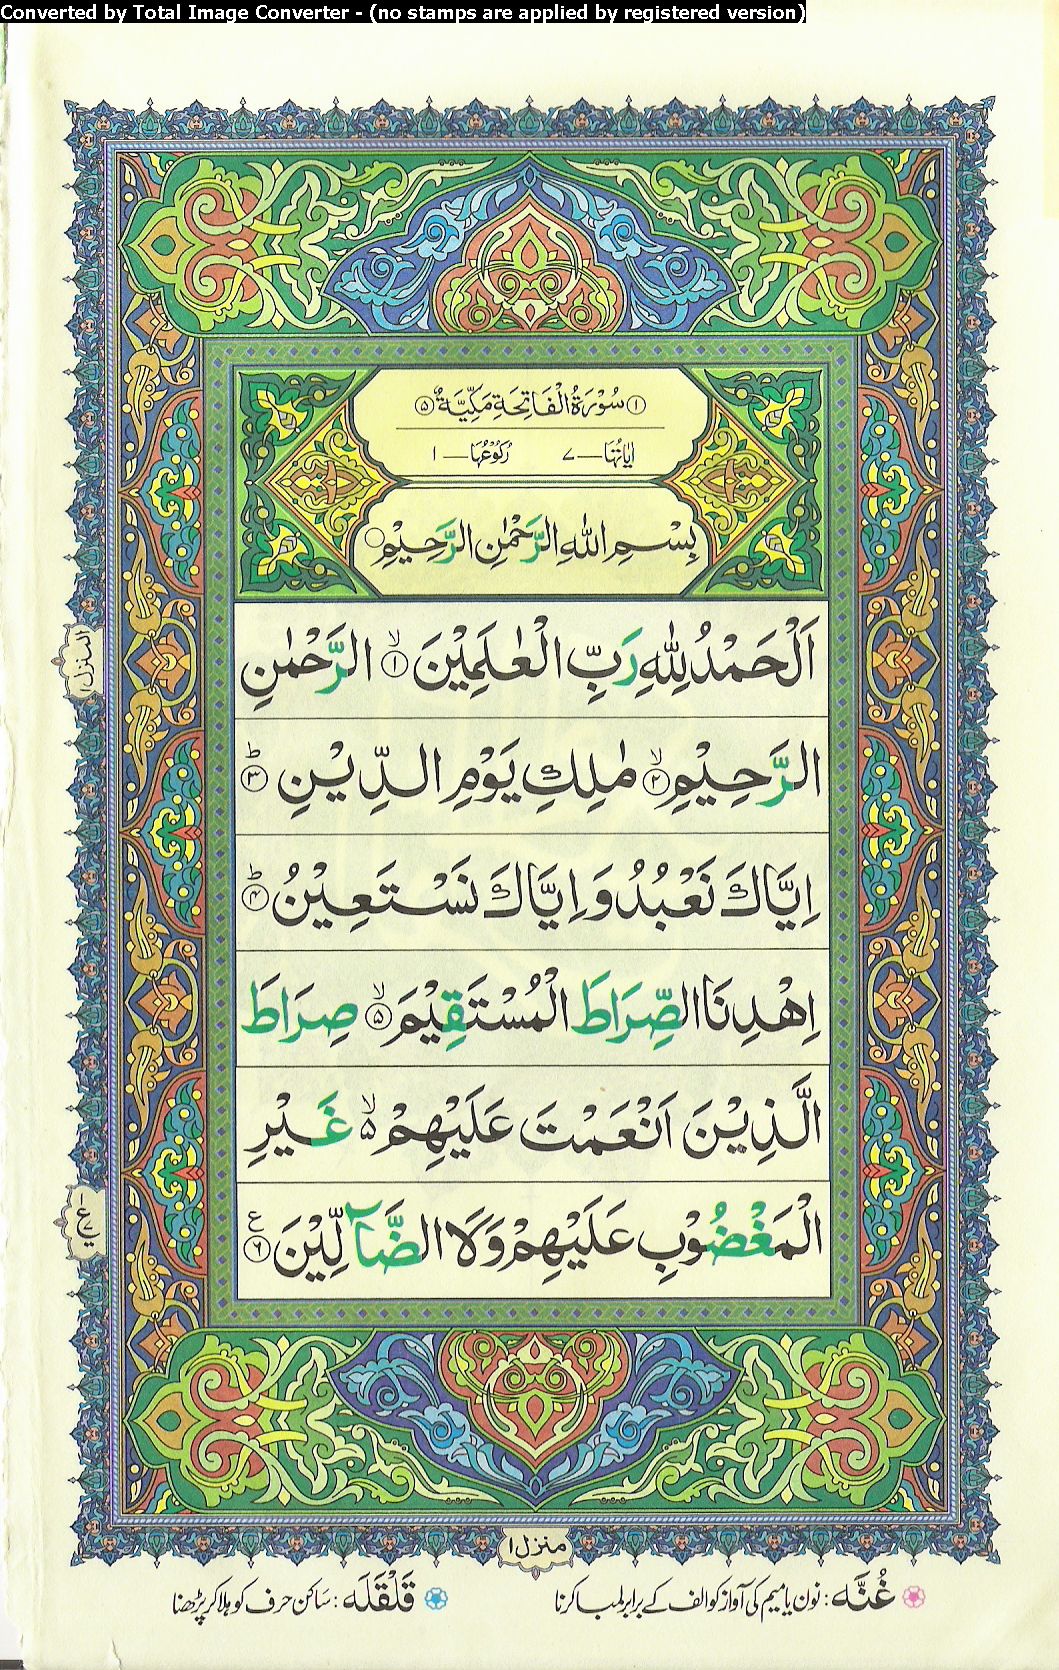 Converted by Total Image Converter - (no stamps are applied by registered version)
۱ سُوْرَةُ الْفَاتِحَةِ مَكِّيَّةٌ ۵
اٰيَاتُهَا — ۷ رُكُوْعُهَا — ۱
بِسْمِ اللّٰهِ الرَّحْمٰنِ الرَّحِيْمِ ○
اَلْحَمْدُ لِلّٰهِ رَبِّ الْعٰلَمِيْنَ ۙ﴿۱﴾ الرَّحْمٰنِ
الرَّحِيْمِ ۙ﴿۲﴾ مٰلِكِ يَوْمِ الدِّيْنِ ؕ﴿۳﴾
اِيَّاكَ نَعْبُدُ وَ اِيَّاكَ نَسْتَعِيْنُ ؕ﴿۴﴾
اِهْدِنَا الصِّرَاطَ الْمُسْتَقِيْمَ ۙ﴿۵﴾ صِرَاطَ
الَّذِيْنَ اَنْعَمْتَ عَلَيْهِمْ ۙ۵ غَيْرِ
الْمَغْضُوْبِ عَلَيْهِمْ وَلَا الضَّآلِّيْنَ ﴿۶﴾ ع
المنزل ۱
ع ۱ ۷
منزل ۱
غُنَّه : نون یا میم کی آواز کو الف کے برابر لمبا کرنا
قَلْقَلَه : ساکن حرف کو ہلا کر پڑھنا